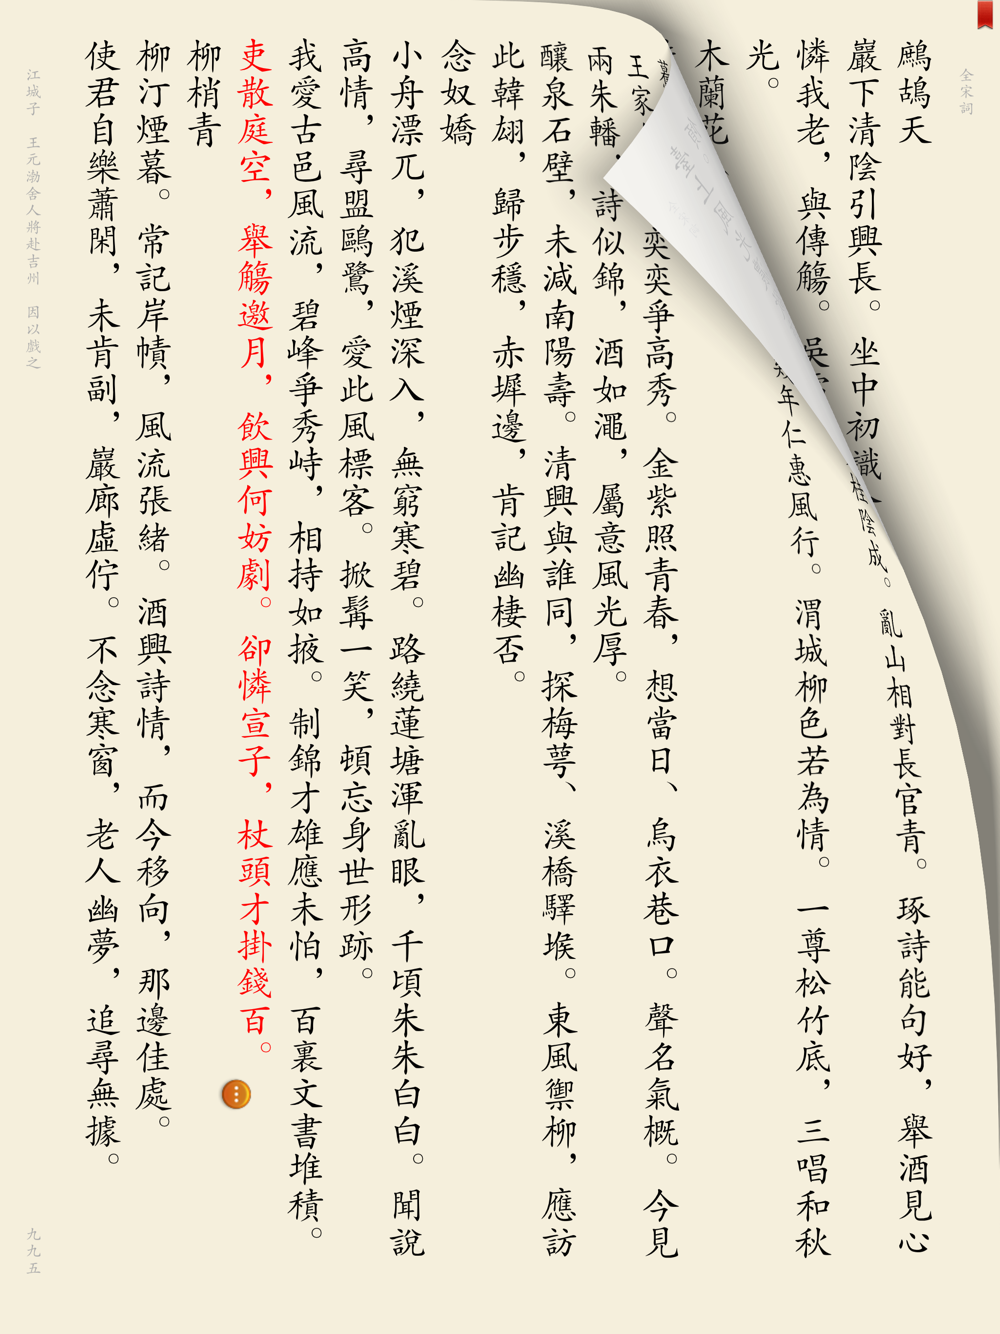 全宋詞
鷓鴣天
巖下清陰引興長。坐中初識
桂陰成。亂山相對長官青。琢詩能句好，舉酒見心
憐我老，與傳觴。吳
年仁惠風行。渭城柳色若為情。一尊松竹底，三唱和秋
光。
木蘭花
奕奕爭高秀。金紫照青春，想當日、烏衣巷口。聲名氣概。今見
王家
兩朱轓，詩似錦，酒如澠，屬意風光厚。
釀泉石壁，未減南陽壽。清興與誰同，探梅萼、溪橋驛堠。東風禦柳，應訪
此韓翃，歸步穩，赤墀邊，肯記幽棲否。
念奴嬌
小舟漂兀，犯溪煙深入，無窮寒碧。路繞蓮塘渾亂眼，千頃朱朱白白。聞說
高情，尋盟鷗鷺，愛此風標客。掀髯一笑，頓忘身世形跡。
我愛古邑風流，碧峰爭秀峙，相持如掖。制錦才雄應未怕，百裏文書堆積。
吏散庭空，舉觴邀月，飲興何妨劇。卻憐宣子，杖頭才掛錢百。
柳梢青
柳汀煙暮。常記岸幘，風流張緒。酒興詩情，而今移向，那邊佳處。
使君自樂蕭閑，未肯副，巖廊虛佇。不念寒窗，老人幽夢，追尋無據。
江城子　王元渤舍人將赴吉州　因以戲之
九九五